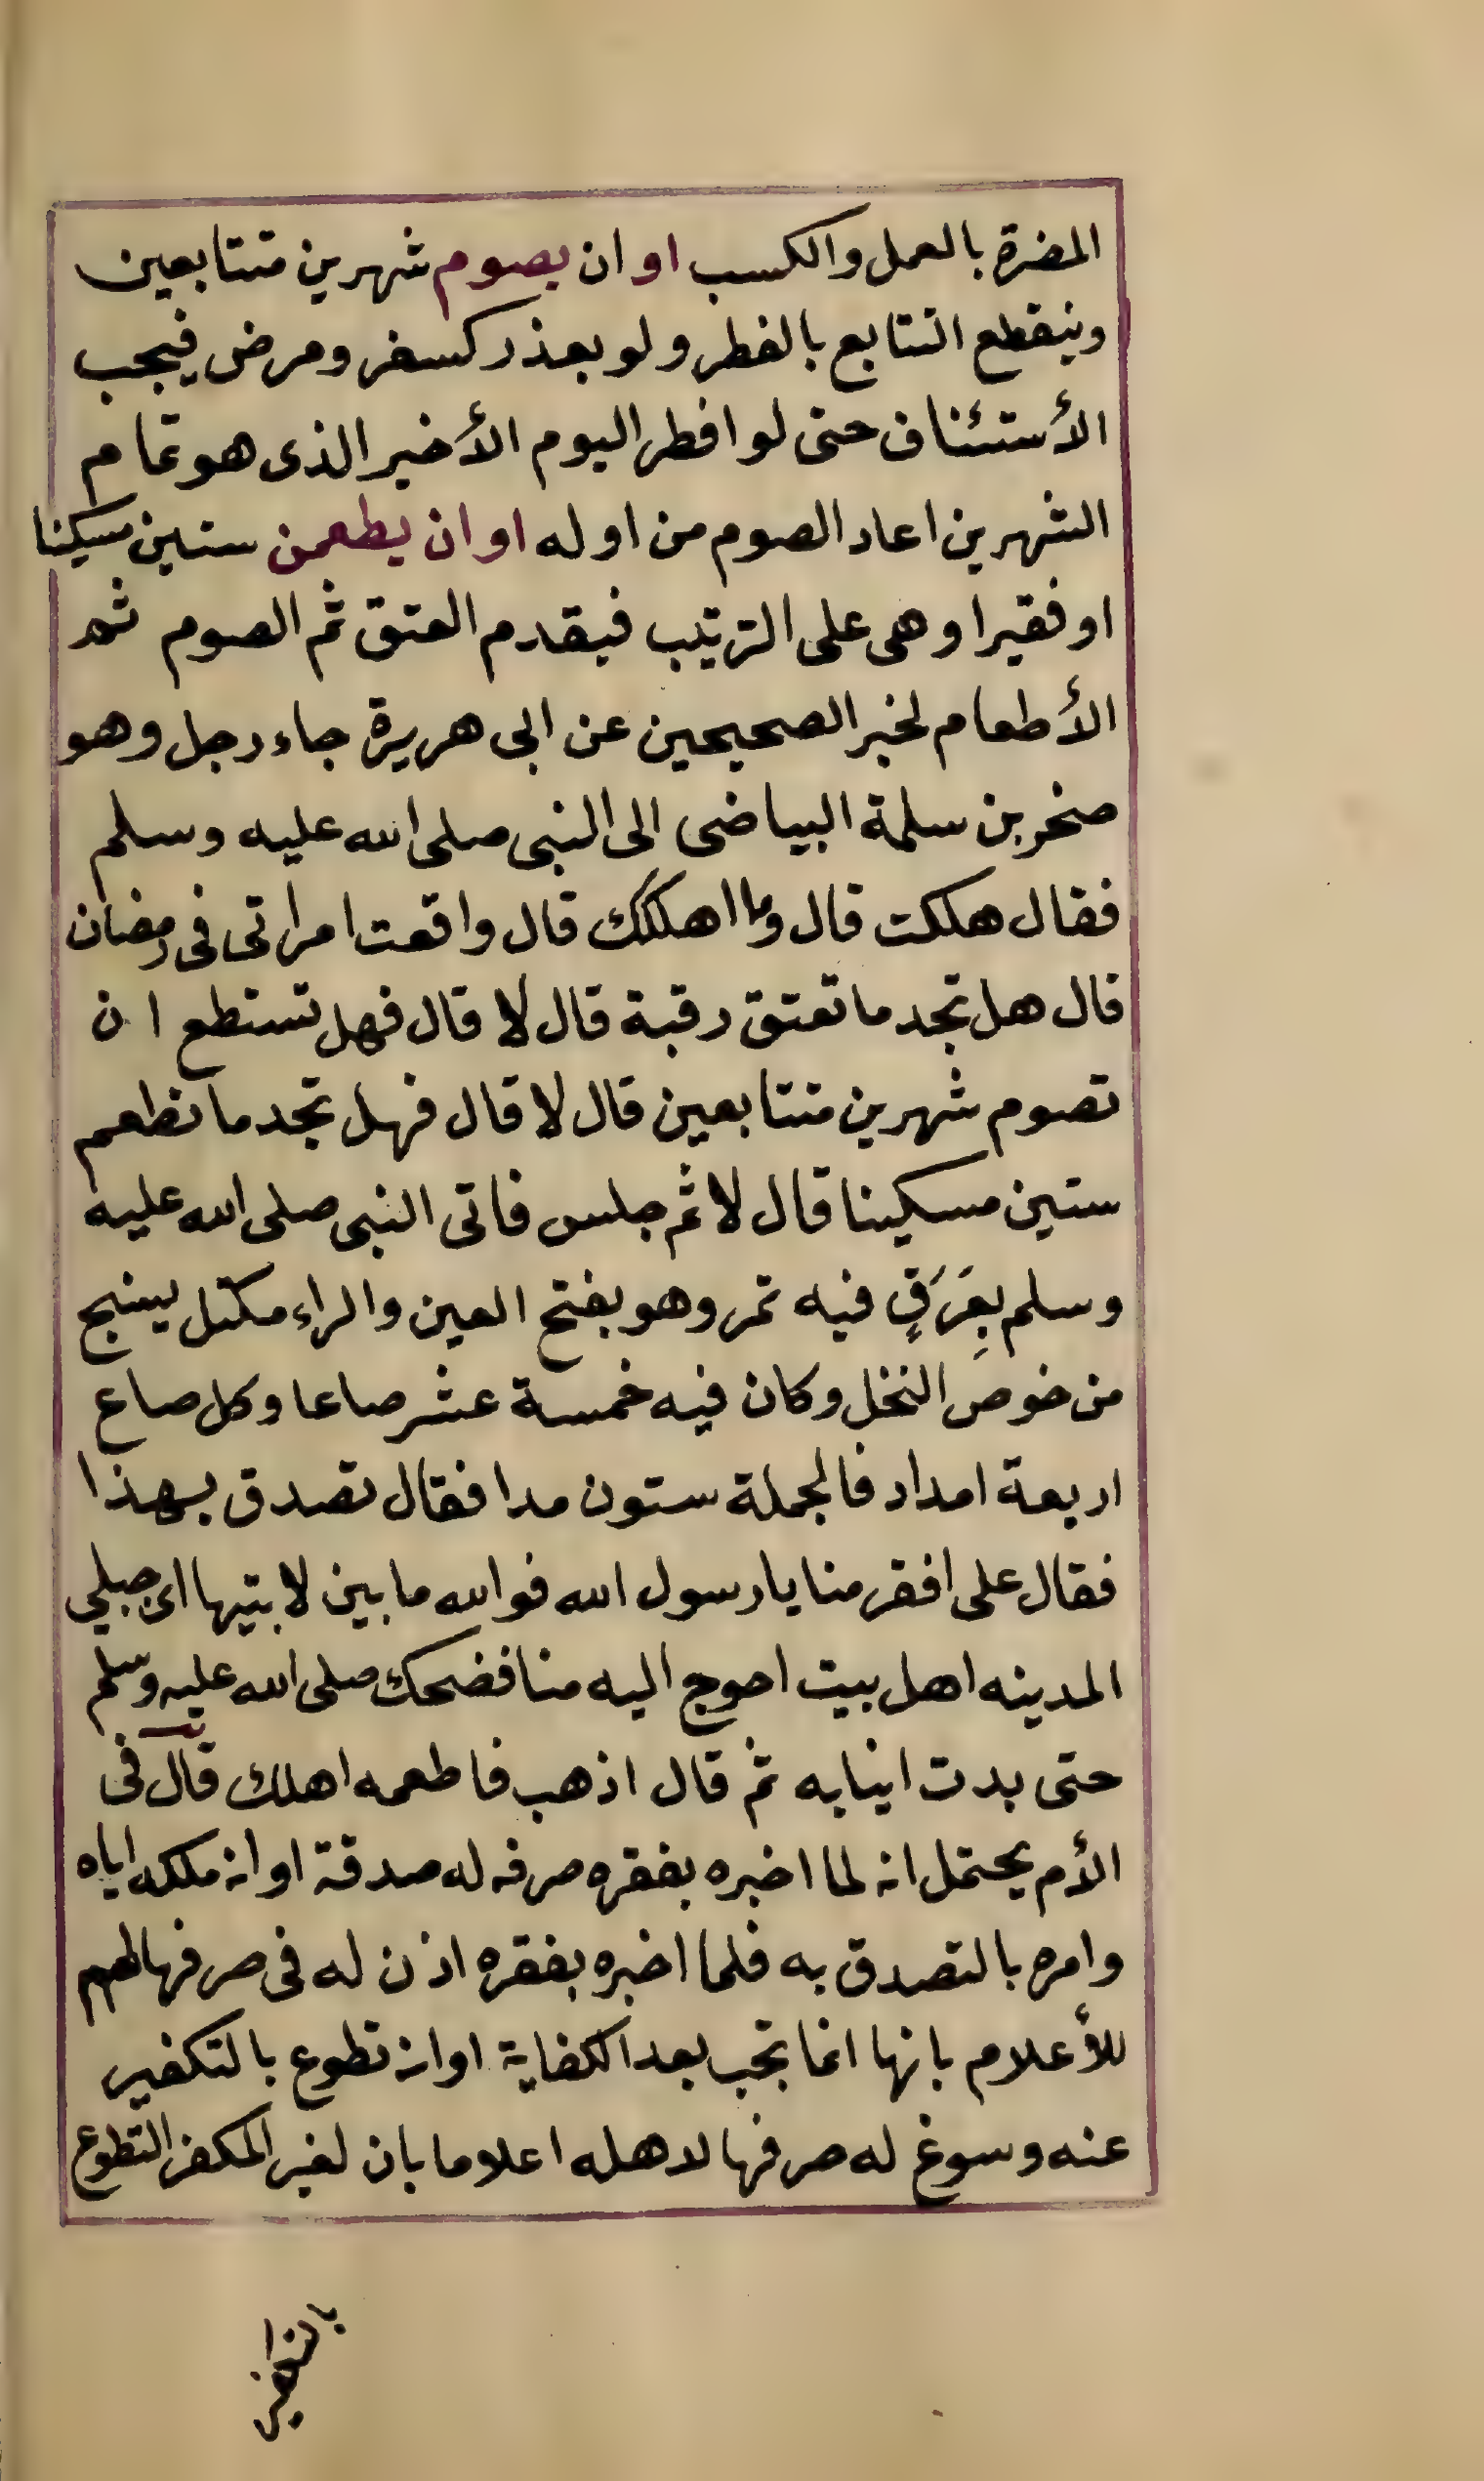 المضرة بالعمل والكسب او ان يصوم شهرين متتابعين
وينقطع التتابع بالفطر ولو بعذر كسفر ومرض فيجب
الأستئناف حتى لو افطر اليوم الأخير الذى هو تمام
الشهرين اعاد الصوم من اوله او ان يطعمن ستين مسكينا
او فقيرا وهى على الترتيب فيقدم العتق ثم الصوم ثم
الأطعام لخبر الصحيحين عن ابى هريرة جاء رجل وهو
صخر بن سلمة البياضى الى النبى صلى الله عليه وسلم
فقال هلكت قال وما اهلكك قال واقعت امراتى فى رمضان
قال هل تجد ما تعتق رقبة قال لا قال فهل تستطع ان
تصوم شهرين متتابعين قال لا قال فهل تجد ما تطعم
ستين مسكينا قال لا ثم جلس فاتى النبى صلى الله عليه
وسلم بِعَرَقٍ فيه تمر وهو بفتح العين والراء مكتل ينسج
من خوص النخل وكان فيه خمسة عشر صاعا وكل صاع
اربعة امداد فالجملة ستون مدا فقال تصدق بهذا
فقال على افقر منا يا رسول الله فوالله ما بين لابتيها اى جبلي
المدينه اهل بيت احوج اليه منا فضحك صلى الله عليه وسلم
حتى بدت انيابه ثم قال اذهب فاطعمه اهلك قال فى
الأم يحتمل انه لما اخبره بفقره صرفه له صدقة او انه ملكه اياه
وامره بالتصدق به فلما اخبره بفقره اذن له فى صرفها لهم
للأعلام بانها انما تجب بعد الكفاية او انه تطوع بالتكفير
عنه وسوغ له صرفها لاهله اعلاما بان لغير المكفر التطوع